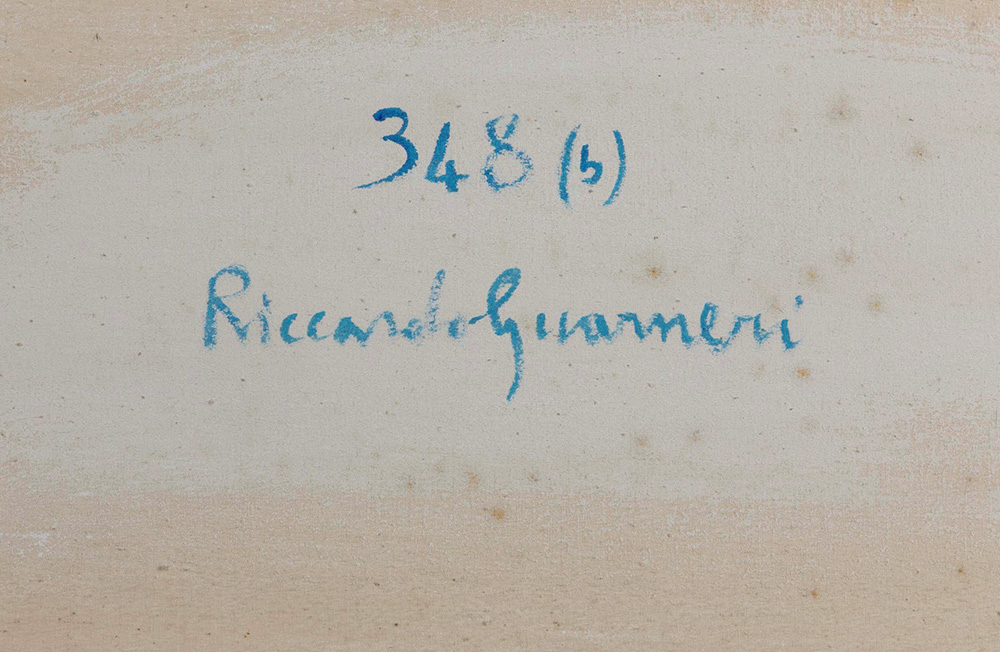 348 (b)
Riccardo Guarneri